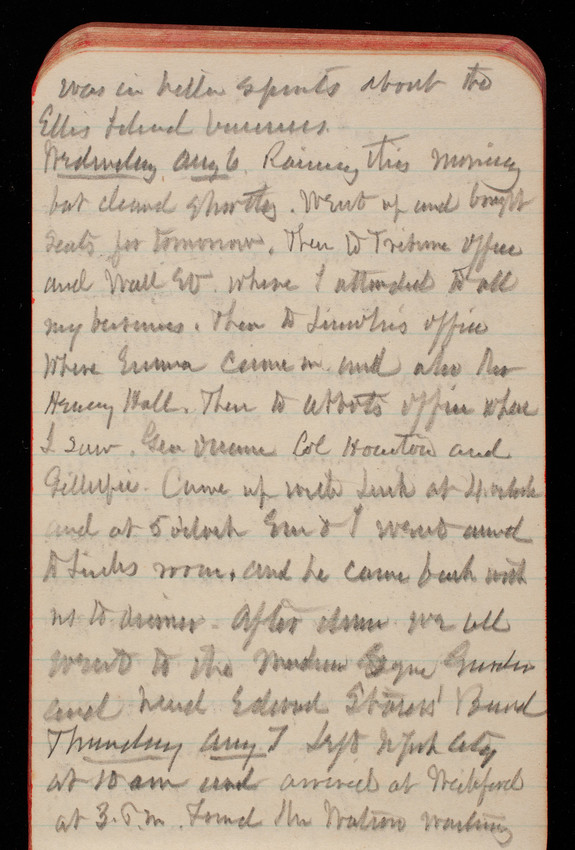 was in better spirits about the
Ellis Island business.
Wednesday Aug 6. Raining this morning
but cleared shortly. Went up and bought
seats for tomorrow. Then to Tribune office
and Wall St. where I attended to all
my business. Then to Lincoln's office
where Emma came in and also
Henry Hall. Then to Abbots office where
I saw. Gen Col Houston and
Gillespie. Came up with Link at 4 oclock
and at 5 oclock Em & I went around
to Links room. and he came back with
us to dinner. After dinner we all
went to the Madison Sqre Garden
and heard Edward Strauss' Band
Thursday Aug 7 Left N York City
at 10 am and arrived at Wickford
at 3. P.m. Found the Watson waiting